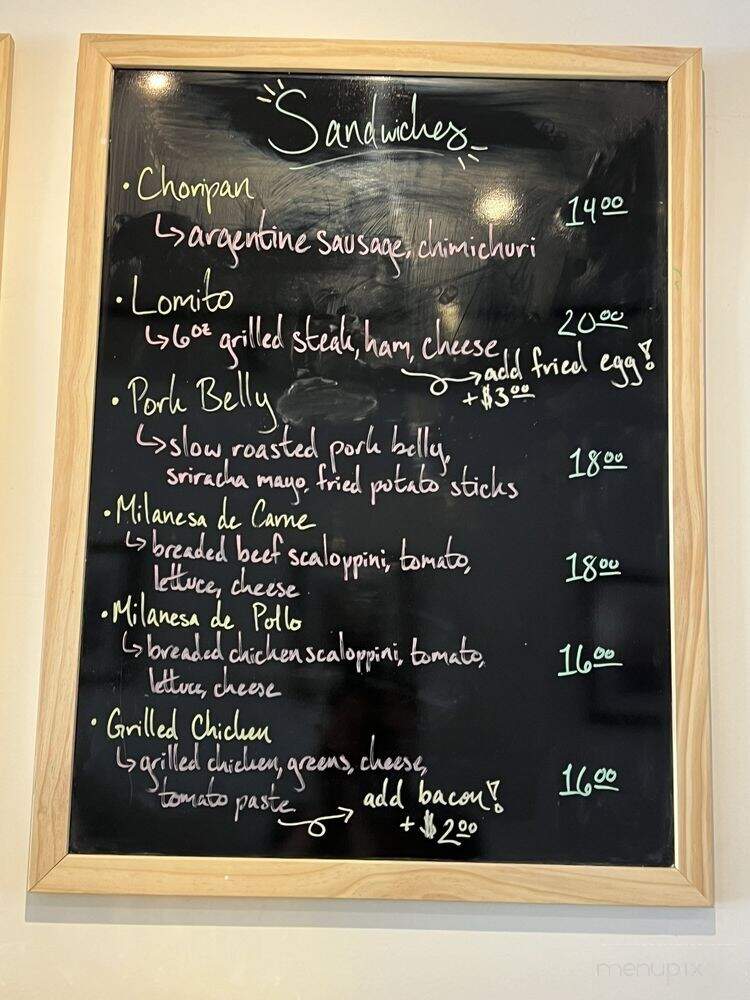 Sandwiches
• Choripan
14.00
↳ argentine sausage, chimichuri
• Lomito
20.00
↳ 6oz grilled steak, ham, cheese
→ add fried egg!
+$3.00
• Pork Belly
↳ slow roasted pork belly,
18.00
sriracha mayo, fried potato sticks
• Milanesa de Carne
↳ breaded beef scaloppini, tomato,
18.00
lettuce, cheese
• Milanesa de Pollo
↳ breaded chicken scaloppini, tomato,
16.00
lettuce, cheese
• Grilled Chicken
↳ grilled chicken, greens, cheese,
16.00
tomato paste → add bacon!
+ $2.00
menupix